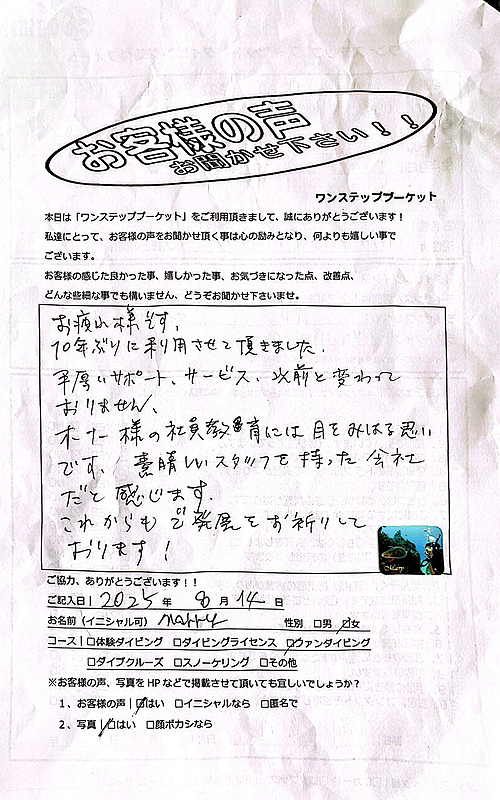 お客様の声
お聞かせ下さい！！
ワンステッププーケット
本日は「ワンステッププーケット」をご利用頂きまして、誠にありがとうございます！
私達にとって、お客様の声をお聞かせ頂く事は心の励みとなり、何よりも嬉しい事で
ございます。
お客様の感じた良かった事、嬉しかった事、お気づきになった点、改善点、
どんな些細な事でも構いません、どうぞお聞かせ下さいませ。
お疲れ様です。
10年ぶりに利用させて頂きました。
手厚いサポート、サービス、以前と変わって
おりません。
オーナー様の社員教育には目をみはる思い
です。素晴しいスタッフを持った会社
だと感じます。
これからもご発展をお祈りして
おります！
ご協力、ありがとうございます！！
ご記入日 2025 年 8 月 14 日
お名前（イニシャル可） 性別 □男 ☑女
コース □体験ダイビング □ダイビングライセンス ☑ファンダイビング
□ダイブクルーズ □スノーケリング □その他
※お客様の声、写真をHPなどで掲載させて頂いても宜しいでしょうか？
1、お客様の声 ☑はい □イニシャルなら □匿名で
2、写真 ☑はい □顔ボカシなら